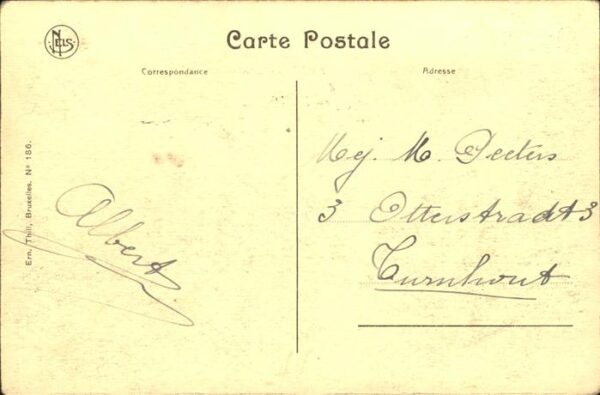 NELS
Carte Postale
Correspondance
Adresse
Ern. Thill, Bruxelles. Nº 186.
Albert
Mej. M. Deckers
3 Otterstradt 3
Turnhout